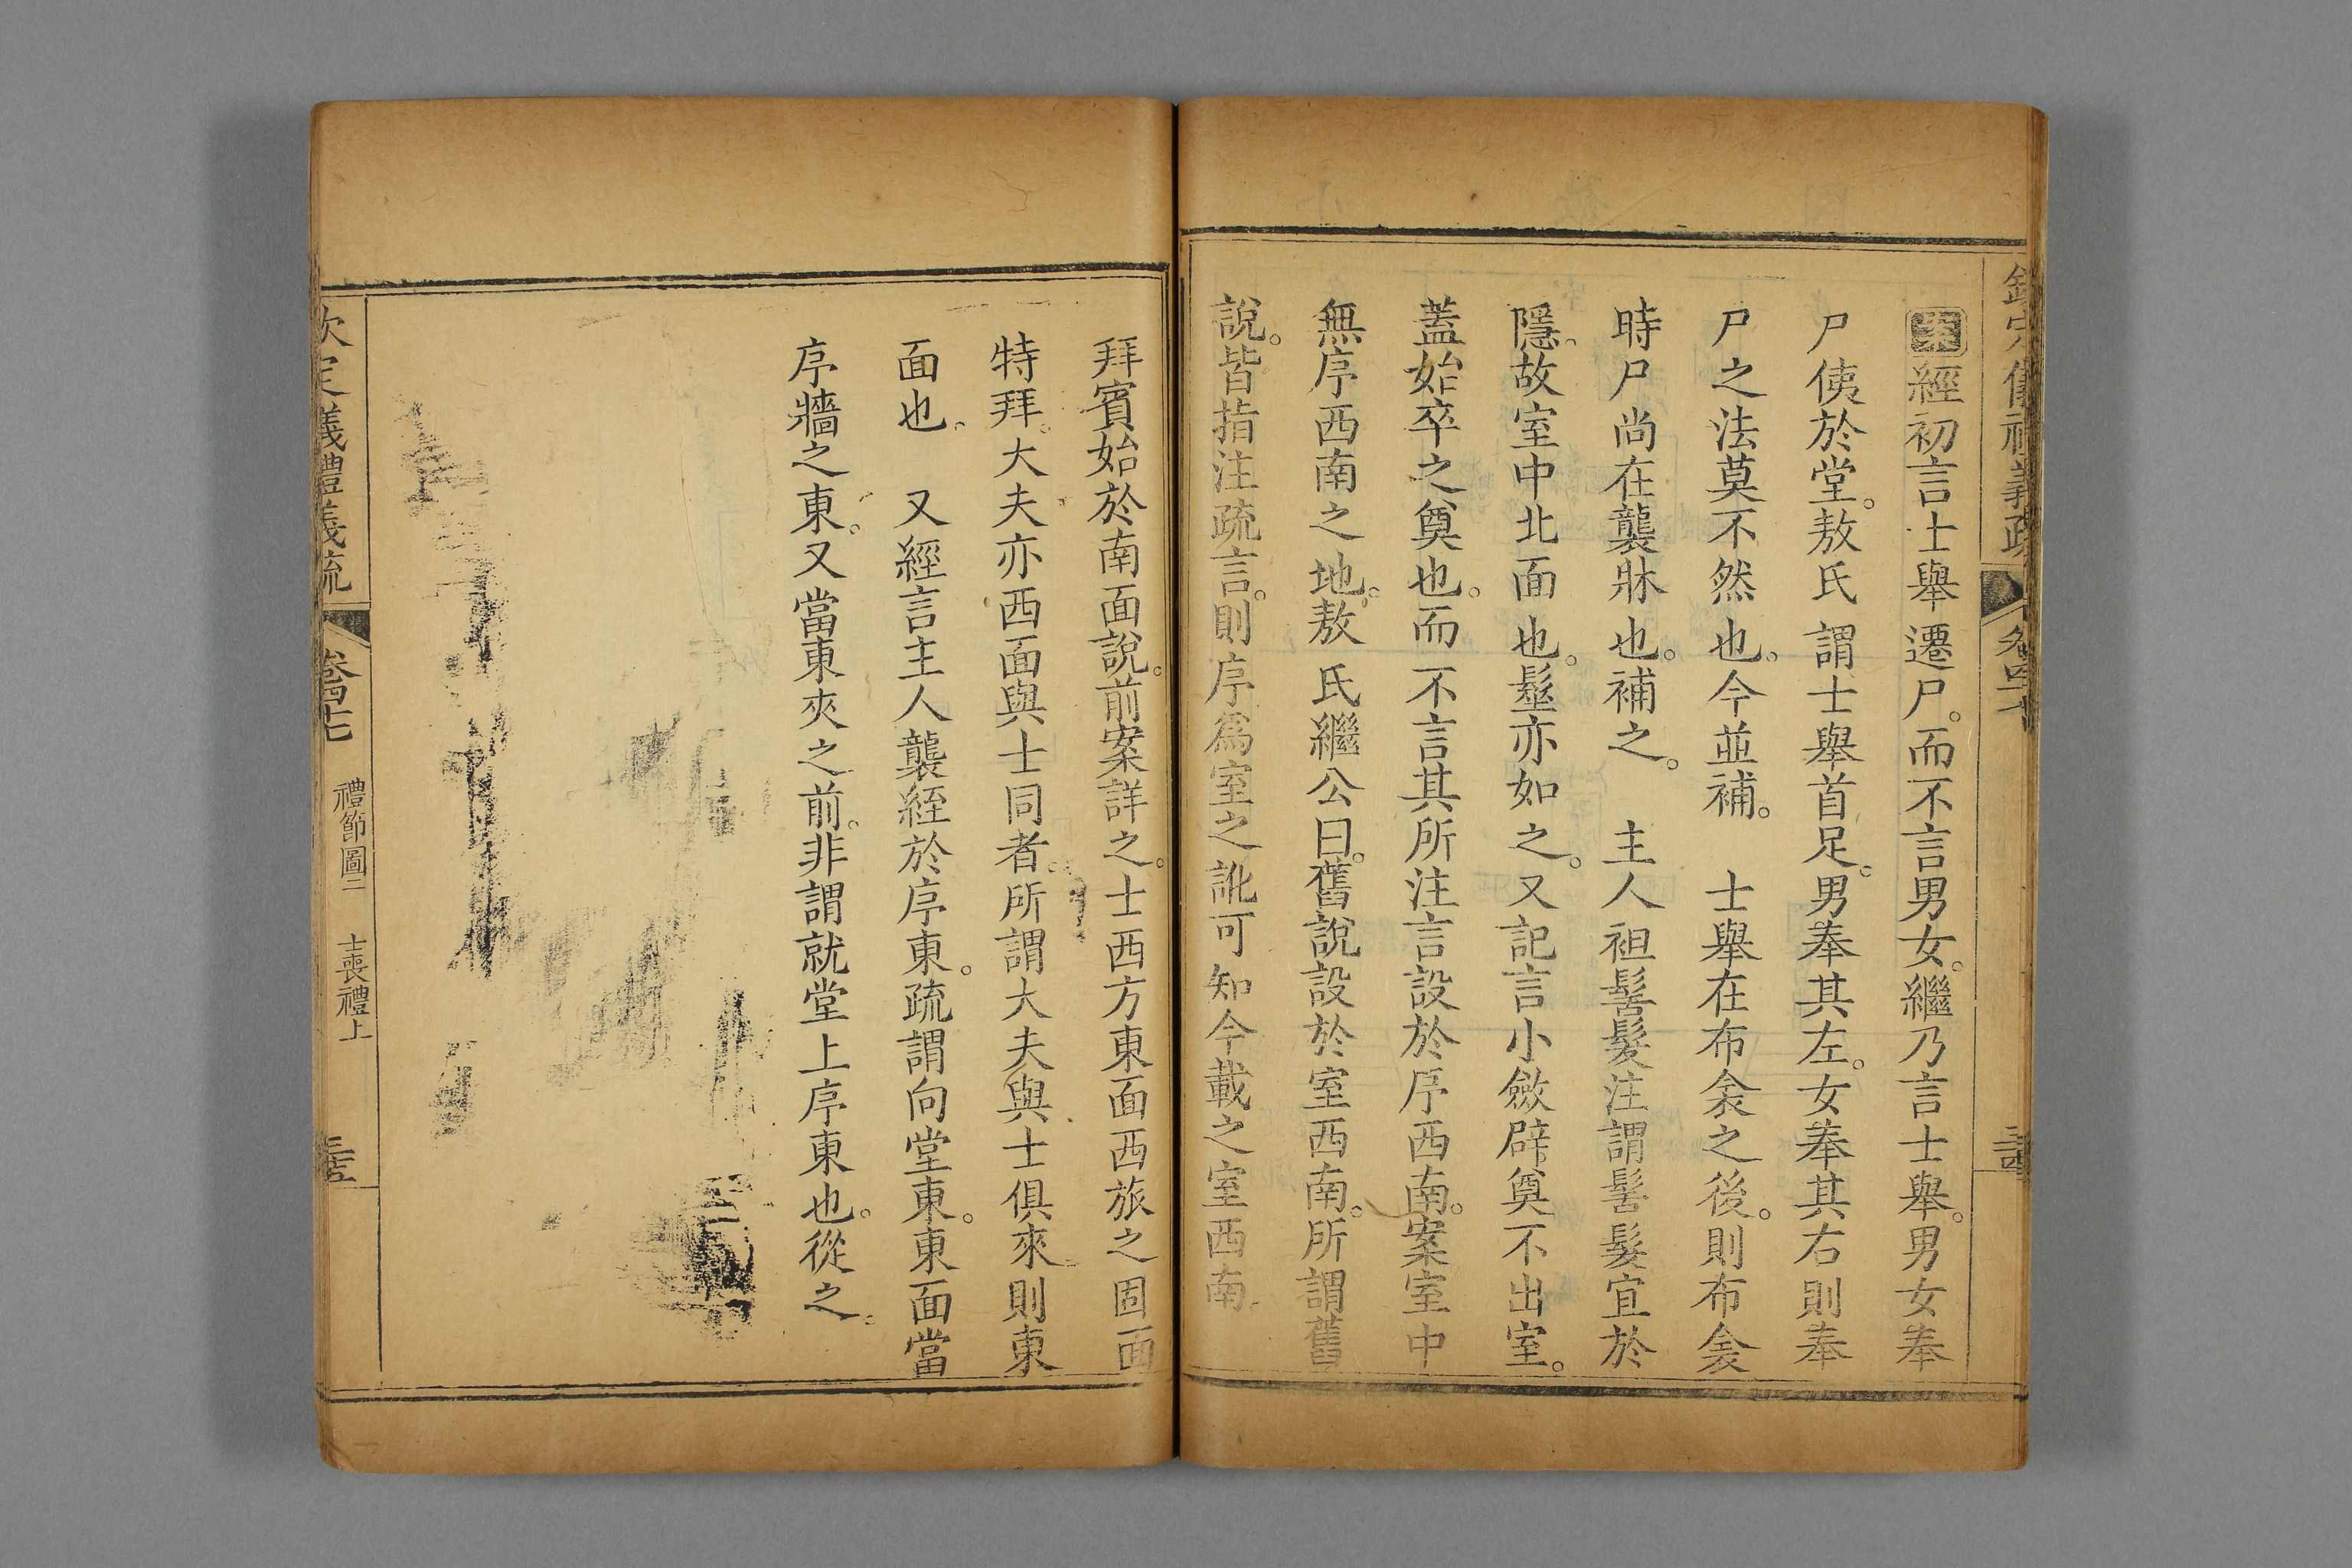 欽定儀禮義疏 卷四十七
案經初言士舉遷尸。而不言男女。繼乃言士舉。男女奉
尸侇於堂。敖氏謂士舉首足。男奉其左。女奉其右則奉
尸之法莫不然也。今並補。 士舉在布衾之後。則布衾
時尸尚在襲牀也。補之。 主人袒髺髮注謂髺髮宜於
隱。故室中北面也。髽亦如之。又記言小斂辟奠不出室。
蓋始卒之奠也。而不言其所注言設於序西南。案室中
無序西南之地。敖氏繼公曰。舊說設於室西南。所謂舊
說。皆指注疏言。則序爲室之訛可知今載之室西南。
拜賓始於南面說。前案詳之。士西方東面西旅之固面
特拜。大夫亦西面與士同者。所謂大夫與士俱來則東
面也。 又經言主人襲絰於序東。疏謂向堂東。東面當
序牆之東。又當東夾之前。非謂就堂上序東也。從之。
欽定儀禮義疏 卷四十七 禮節圖二 士喪禮上